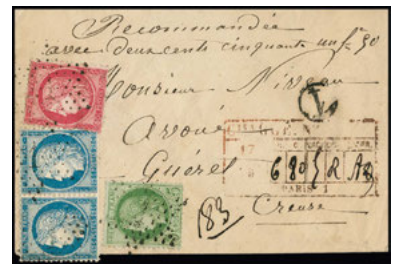 Recommandée
avec deux cents cinquante un f. 50
Monsieur Niveau
avoué
Guéret
CHARGÉ
17
680 R
PARIS 1
183
Creuse